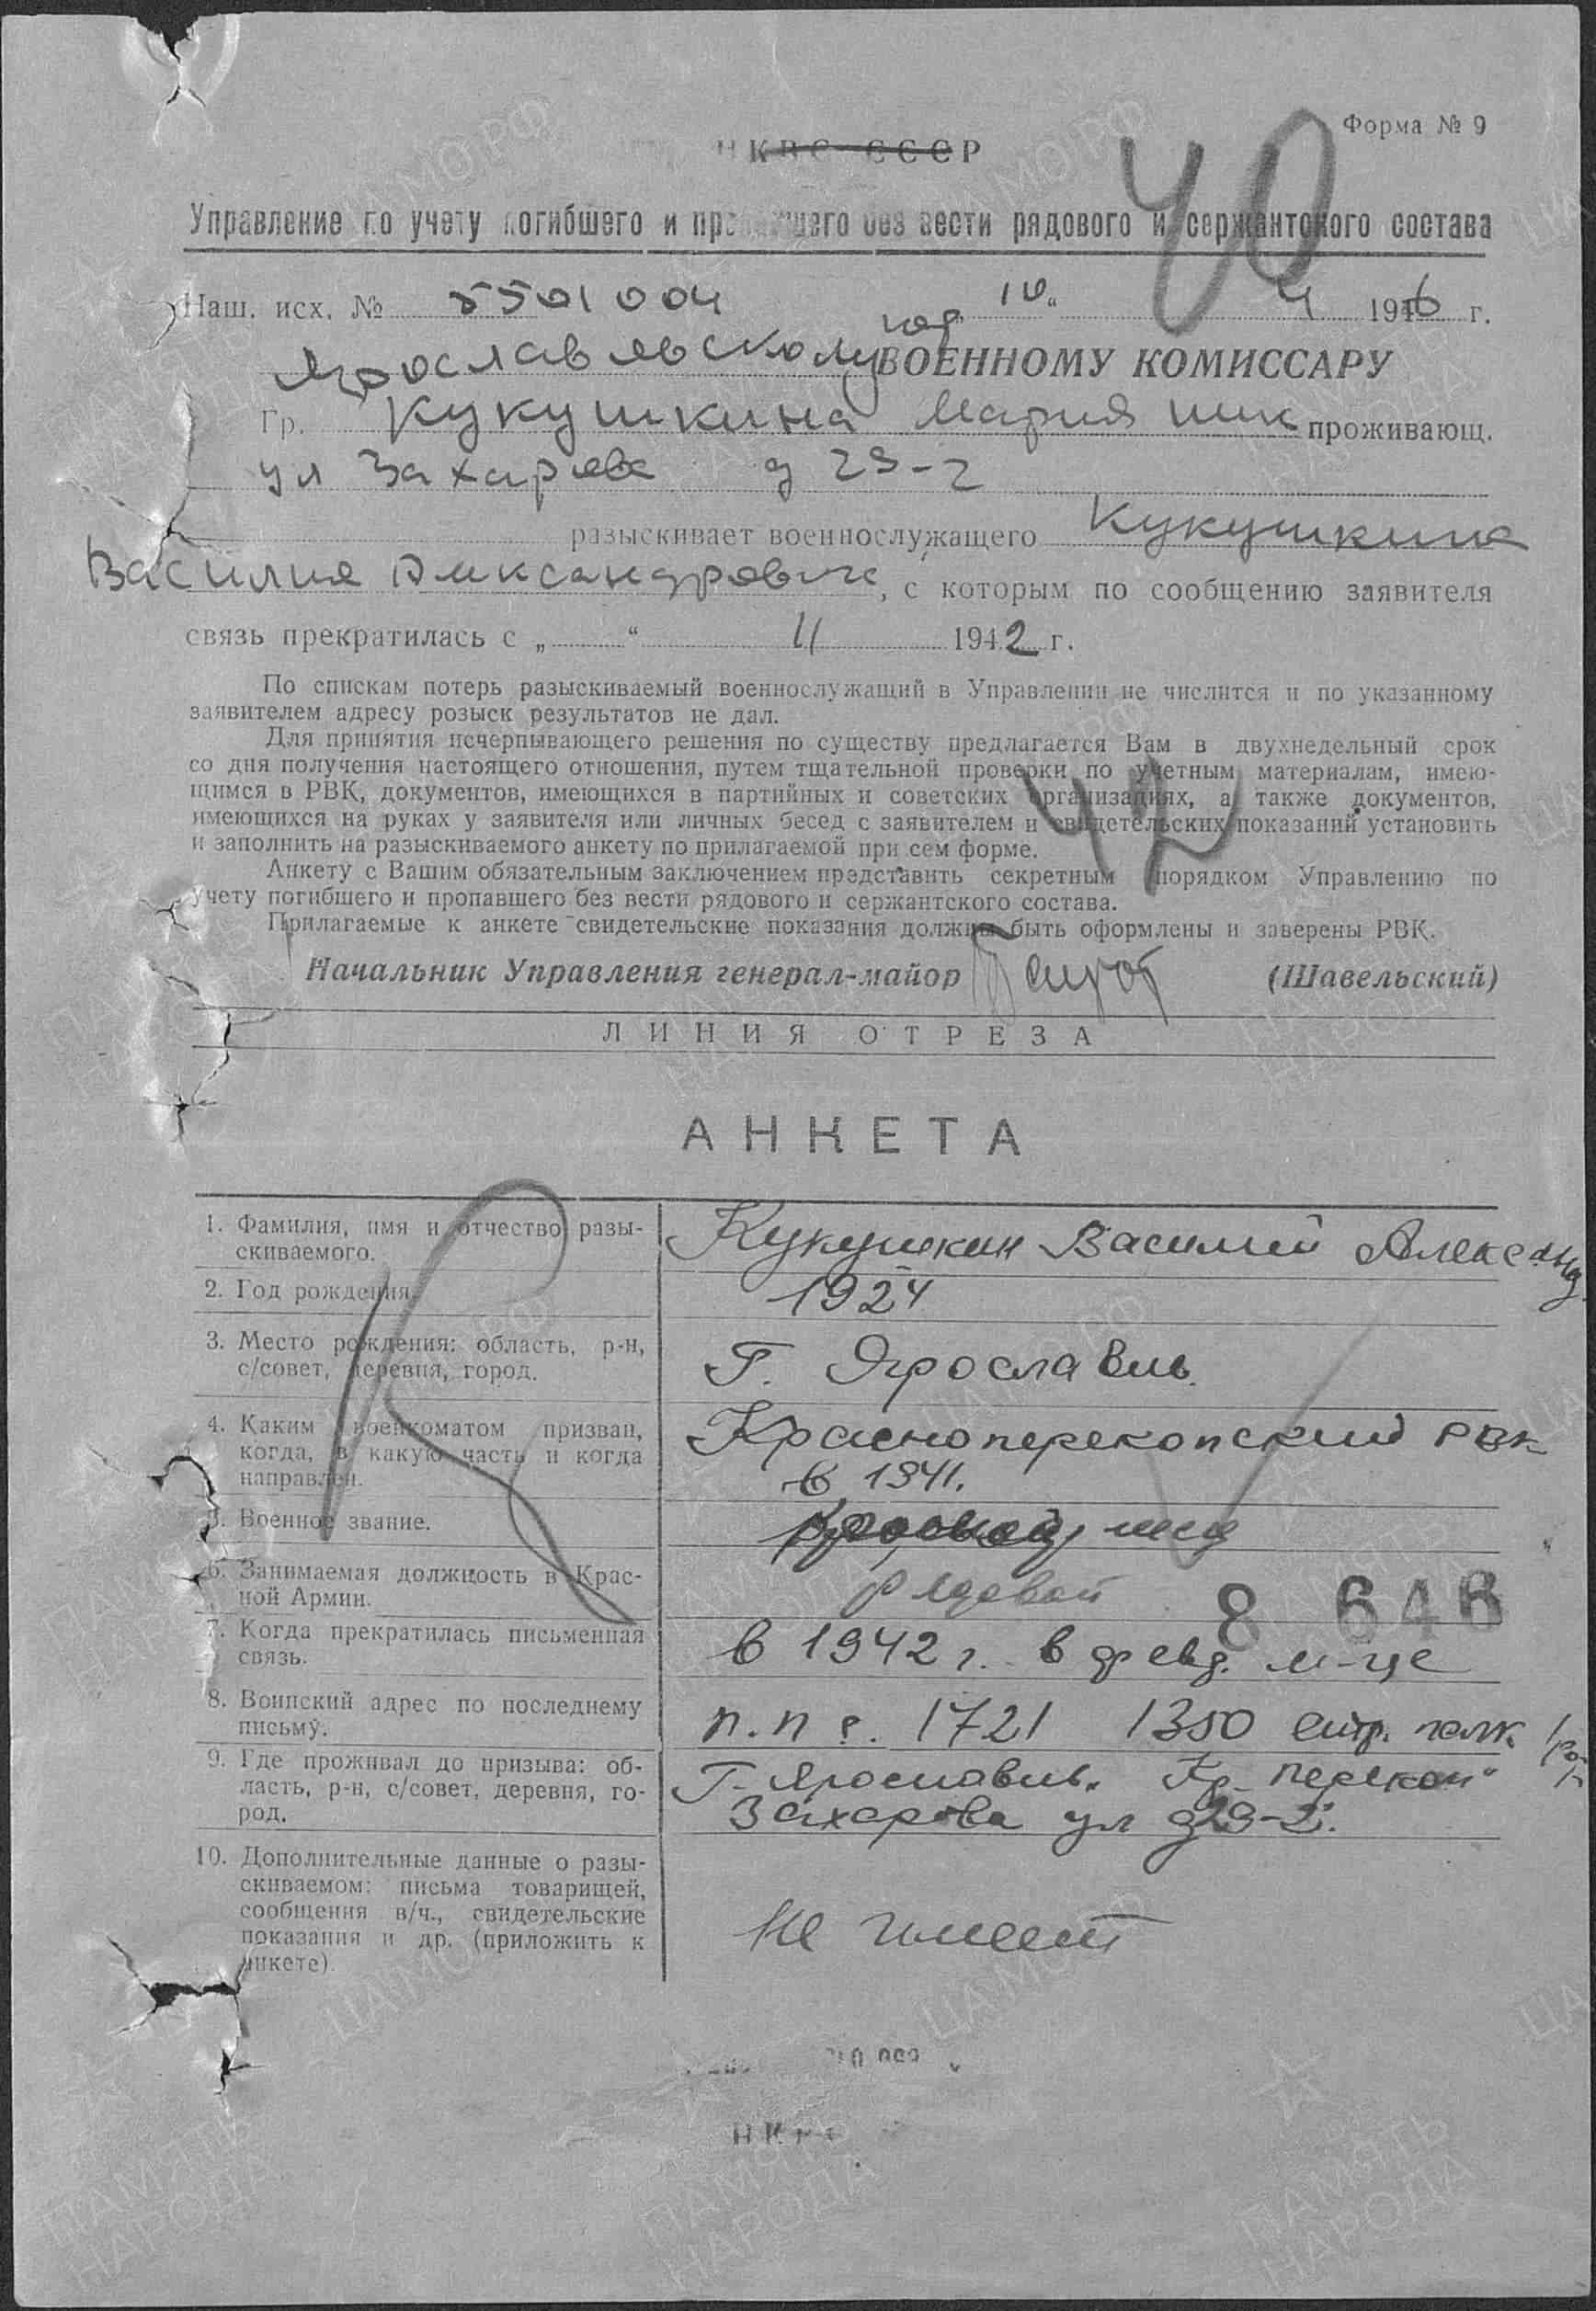 Форма № 9
НКВС СССР
40
Управление по учету погибшего и пропавшего без вести рядового и сержантского состава
Наш. исх. № 5501004 "10" 4 1946 г.
Ярославльскому гор. ВОЕННОМУ КОМИССАРУ
Гр. Кукушкина Мария Ник проживающ.
ул Захарова д 29-2
разыскивает военнослужащего Кукушкина
Василия Александровича, с которым по сообщению заявителя
связь прекратилась с „ “ 11 1942 г.
По спискам потерь разыскиваемый военнослужащий в Управлении не числится и по указанному
заявителем адресу розыск результатов не дал.
Для принятия исчерпывающего решения по существу предлагается Вам в двухнедельный срок
со дня получения настоящего отношения, путем тщательной проверки по учетным материалам, имею-
щимся в РВК, документов, имеющихся в партийных и советских организациях, а также документов,
имеющихся на руках у заявителя или личных бесед с заявителем и свидетельских показаний установить
и заполнить на разыскиваемого анкету по прилагаемой при сем форме.
Анкету с Вашим обязательным заключением представить секретным порядком Управлению по
учету погибшего и пропавшего без вести рядового и сержантского состава.
Прилагаемые к анкете свидетельские показания должны быть оформлены и заверены РВК.
Начальник Управления генерал-майор (Шавельский)
ЛИНИЯ ОТРЕЗА
АНКЕТА
1. Фамилия, имя и отчество разы-
скиваемого.
Кукушкин Василий Александ.
2. Год рождения.
1924
3. Место рождения: область, р-н,
с/совет, деревня, город.
Г. Ярославль.
4. Каким военкоматом призван,
когда, в какую часть и когда
направлен.
Красноперекопский РВК
в 1941.
5. Военное звание.
6. Занимаемая должность в Крас-
ной Армии.
рядовой
8 646
7. Когда прекратилась письменная
связь.
в 1942 г. в февр. м-це
8. Воинский адрес по последнему
письму.
п.п с. 1721 1350 стр. полк
9. Где проживал до призыва: об-
ласть, р-н, с/совет, деревня, го-
род.
Г. Ярославль. Кр. Перекоп
Захарова ул д29-2.
10. Дополнительные данные о разы-
скиваемом: письма товарищей,
сообщения в/ч., свидетельские
показания и др. (приложить к
анкете).
Не имеет
ЦАМО.РФ
ПАМЯТЬ
НАРОДА